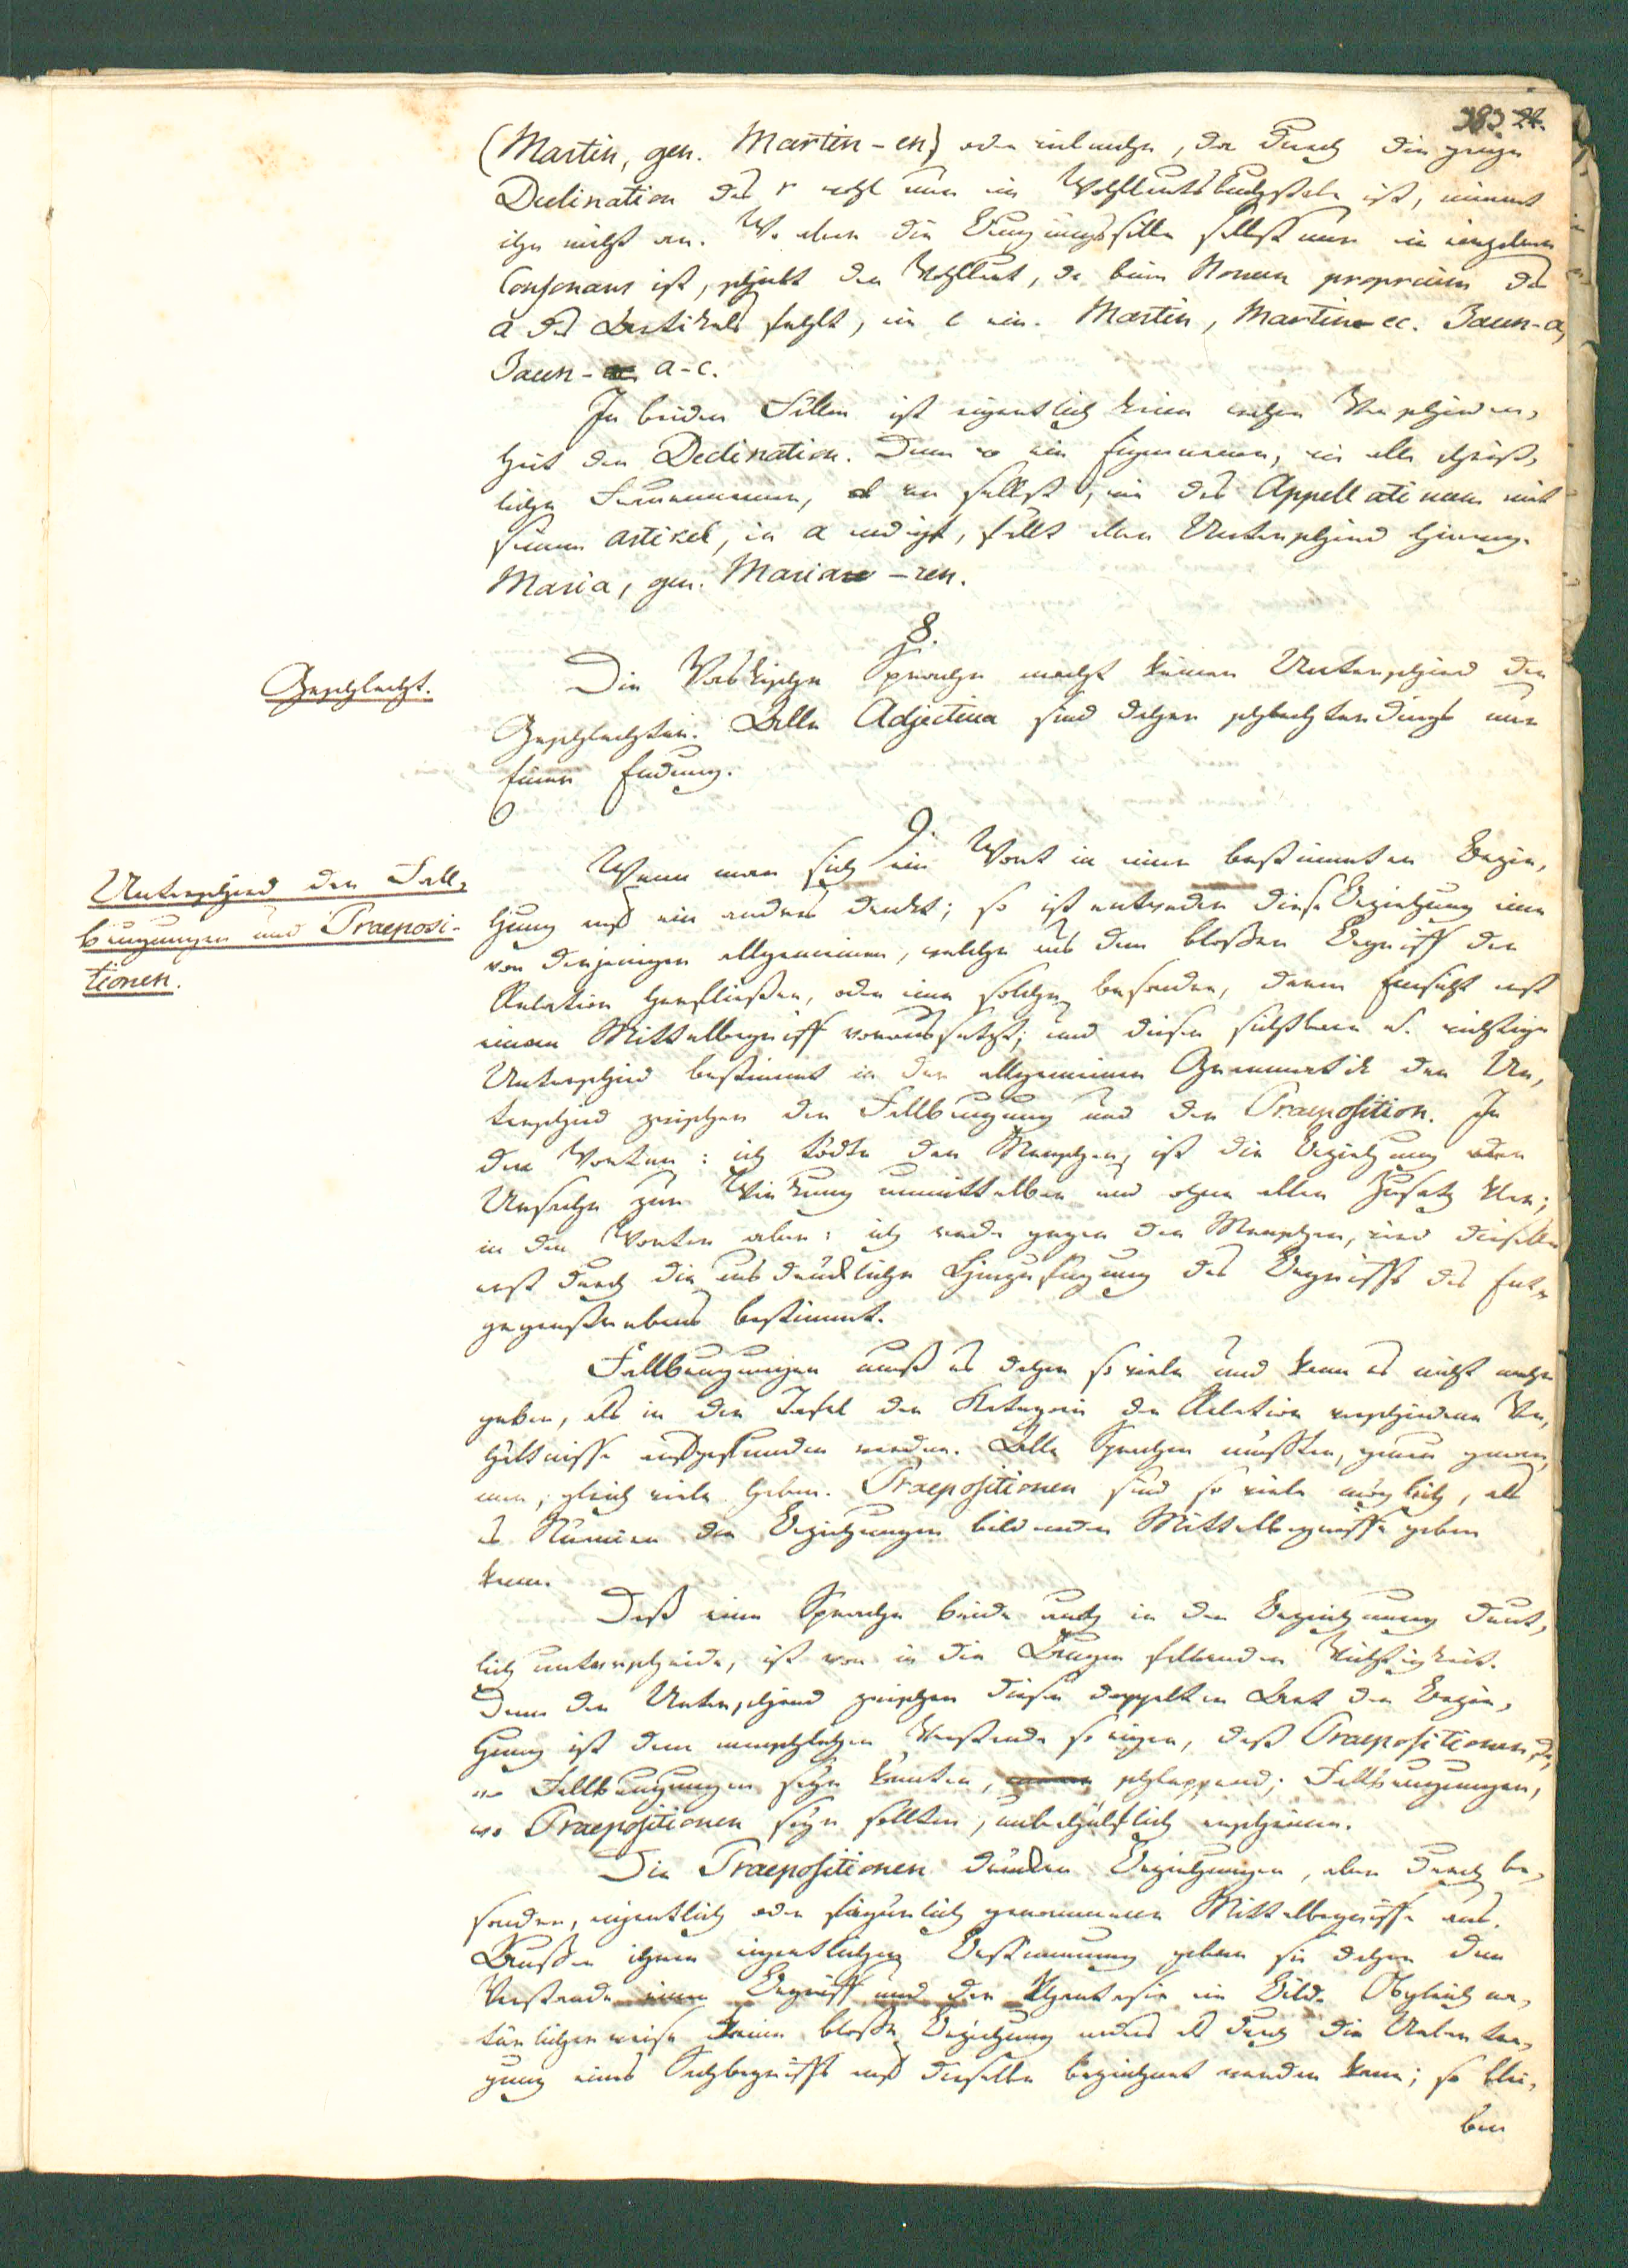 383 24.
(Martin, gen. Martin-en) oder vielmehr, da durch die ganze
Declination das r wohl nur ein Wohllautsbuchstabe ist, nimmt
ihn nicht an. Wo aber die Beugungssilbe selbst nur ein einzelner
Consonans ist, schiebt der Wohllaut, da beim Nomen proprium das
a des Artikels fehlt, ein e ein. Martin, Martin-ec. Jaun-a,
Jaun-a-c.
In beiden Fällen ist eigentlich keine wahre Verschieden,
heit der Declination. Denn wo ein Eigenname, wie alle christ,
liche Frauennamen, von selbst, wie das Appellativum mit
seinem artikel, in a endigt, fällt aller Unterschied hinweg.
Maria, gen. Maria-ren.
8.
Geschlecht.
Die Vaskische Sprache macht keinen Unterschied der
Geschlechter. Alle Adjectiva sind daher schlechterdings nur
Einer Endung.
9.
Unterschied der Fall,
beugungen und Praeposi-
tionen.
Wenn man sich ein Wort in einer bestimmten Bezie,
hung auf ein andres denkt; so ist entweder diese Beziehung eine
von denjenigen allgemeinen, welche aus dem bloßen Begriff der
Relation herfließen, oder eine solche besondre, deren Einsicht erst
einen Mittelbegriff voraussetzt; und dieser sichtbare u. wichtige
Unterschied bestimmt in der allgemeinen Grammatik den Un,
terschied zwischen der Fallbeugung und der Praeposition. In
den Worten: ich tödte den Menschen, ist die Beziehung der
Ursache zur Wirkung unmittelbar und ohne allen Zusatz klar;
in den Worten aber: ich rede gegen den Menschen, wird dieselbe
erst durch die ausdrückliche Hinzufügung des Begriffs des Ent,
gegenstrebens bestimmt.
Fallbeugungen muß es daher so viele und kann es nicht mehr
geben, als in der Tafel der Kategorie der Relation verschiedene Ver,
hältnisse aufgefunden werden. Alle Sprachen müßten, genau genom,
men, gleich viele haben. Praepositionen sind so viele möglich, als
es Nüancen der Beziehungen bildenden Mittelbegriffe geben
kann.
Daß eine Sprache beide auch in der Bezeichnung deut,
lich unterscheide, ist von in die Augen fallender Wichtigkeit.
Denn der Unterschied zwischen dieser doppelten Art der Bezie,
hung ist dem menschlichen Verstande so eigen, daß Praepositionen da,
wo Fallbeugungen seyn könnten, schleppend; Fallbeugungen,
wo Praepositionen seyn sollten, unbehülflich erscheinen.
Die Praepositionen drücken Beziehungen, aber durch be,
sondre, eigentlich oder figürlich genommene Mittelbegriffe aus.
Außer ihrer eigentlichen Bestimmung geben sie daher dem
Verstande einen Begriff und der Phantasie ein Bild. Obgleich na,
türlicherweise keine bloße Beziehung anders als durch die Uebertra,
gung eines Sachbegriffs auf dieselbe bezeichnet werden kann; so blei,
ben